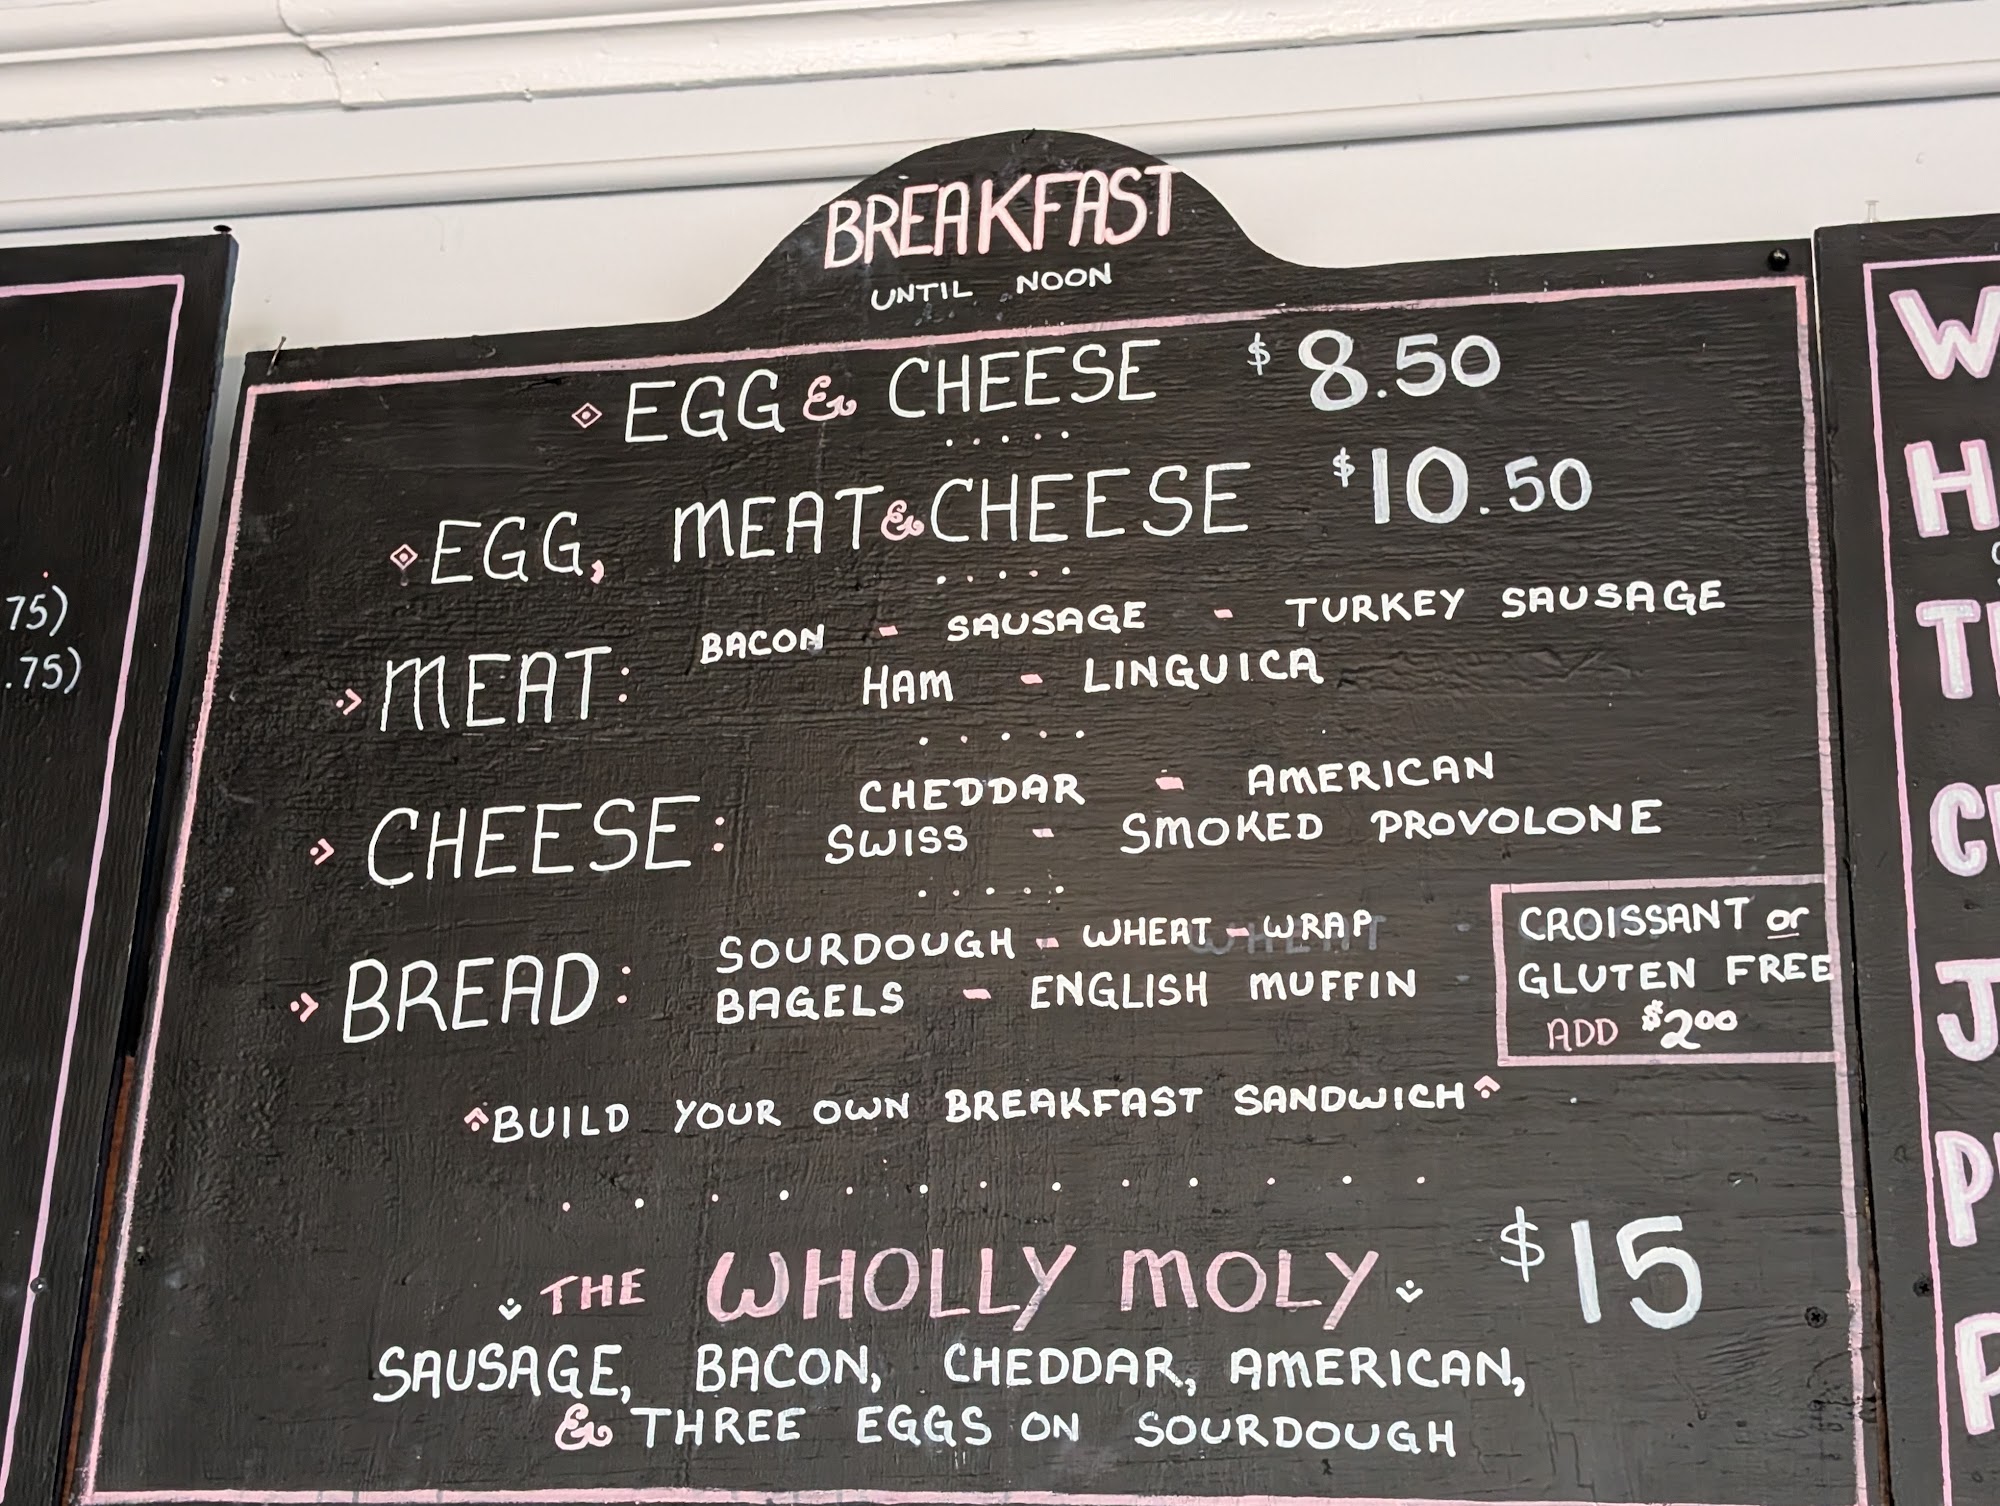 BREAKFAST
UNTIL NOON
EGG & CHEESE $8.50
EGG, MEAT & CHEESE $10.50
MEAT: BACON - SAUSAGE - TURKEY SAUSAGE
HAM - LINGUICA
CHEESE: CHEDDAR - AMERICAN
SWISS - SMOKED PROVOLONE
BREAD: SOURDOUGH - WHEAT - WRAP
BAGELS - ENGLISH MUFFIN
CROISSANT or
GLUTEN FREE
ADD $2.00
BUILD YOUR OWN BREAKFAST SANDWICH
THE WHOLLY MOLY $15
SAUSAGE, BACON, CHEDDAR, AMERICAN,
& THREE EGGS ON SOURDOUGH
75)
.75)